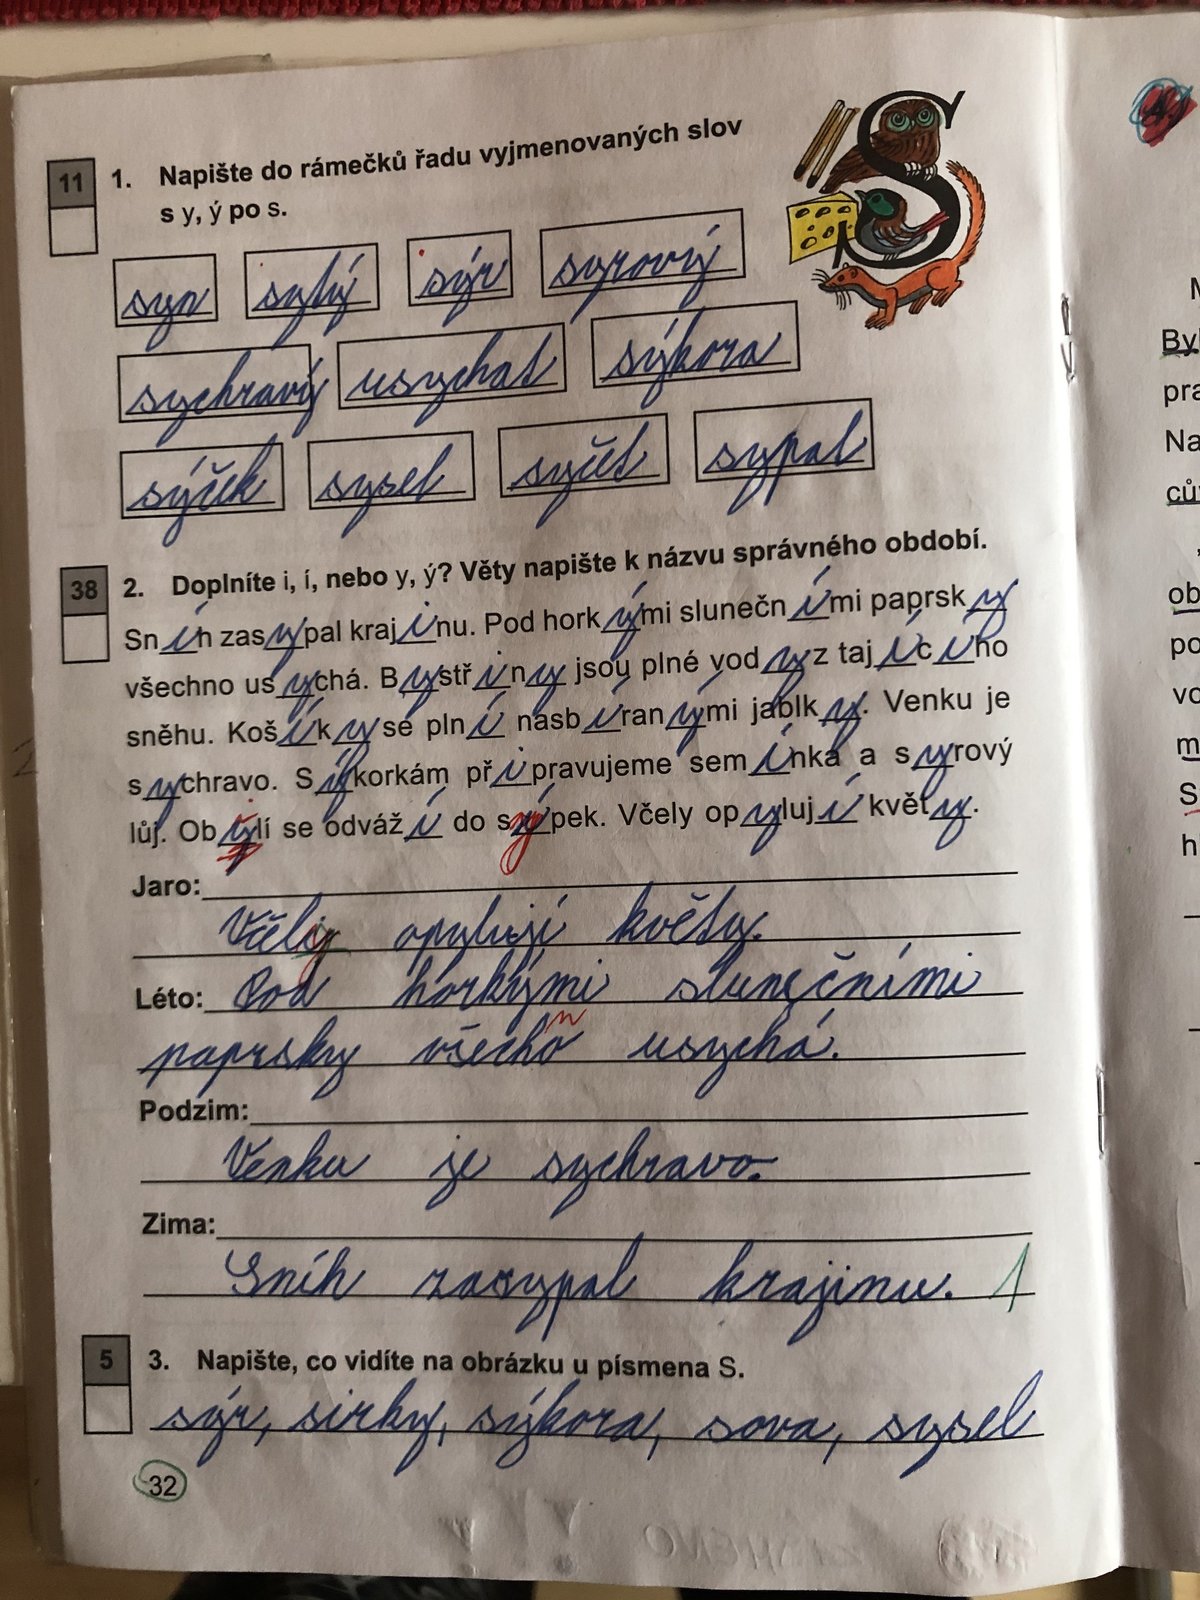 11 1. Napište do rámečků řadu vyjmenovaných slov
s y, ý po s.
syn sytý sýr syrový
sychravý usychat sýkora
sýček sysel syčet sypat
38 2. Doplníte i, í, nebo y, ý? Věty napište k názvu správného období.
Sníh zasypal krajinu. Pod horkými slunečními paprsky
všechno usychá. Bystřiny jsou plné vody z tajícího
sněhu. Košíky se plní nasbíranými jablky. Venku je
sychravo. Sýkorkám připravujeme semínka a syrový
lůj. Obylí se odváží do sýpek. Včely opylují květy.
Jaro:
Včely opylují květy.
Léto: Pod horkými slunečními
n
paprsky všecho usychá.
Podzim:
Venku je sychravo.
Zima:
Sníh zasypal krajinu. 1
5 3. Napište, co vidíte na obrázku u písmena S.
sýr, sirky, sýkora, sova, sysel
32
By
pra
Na
ců
ob
po
vo
m
S
h